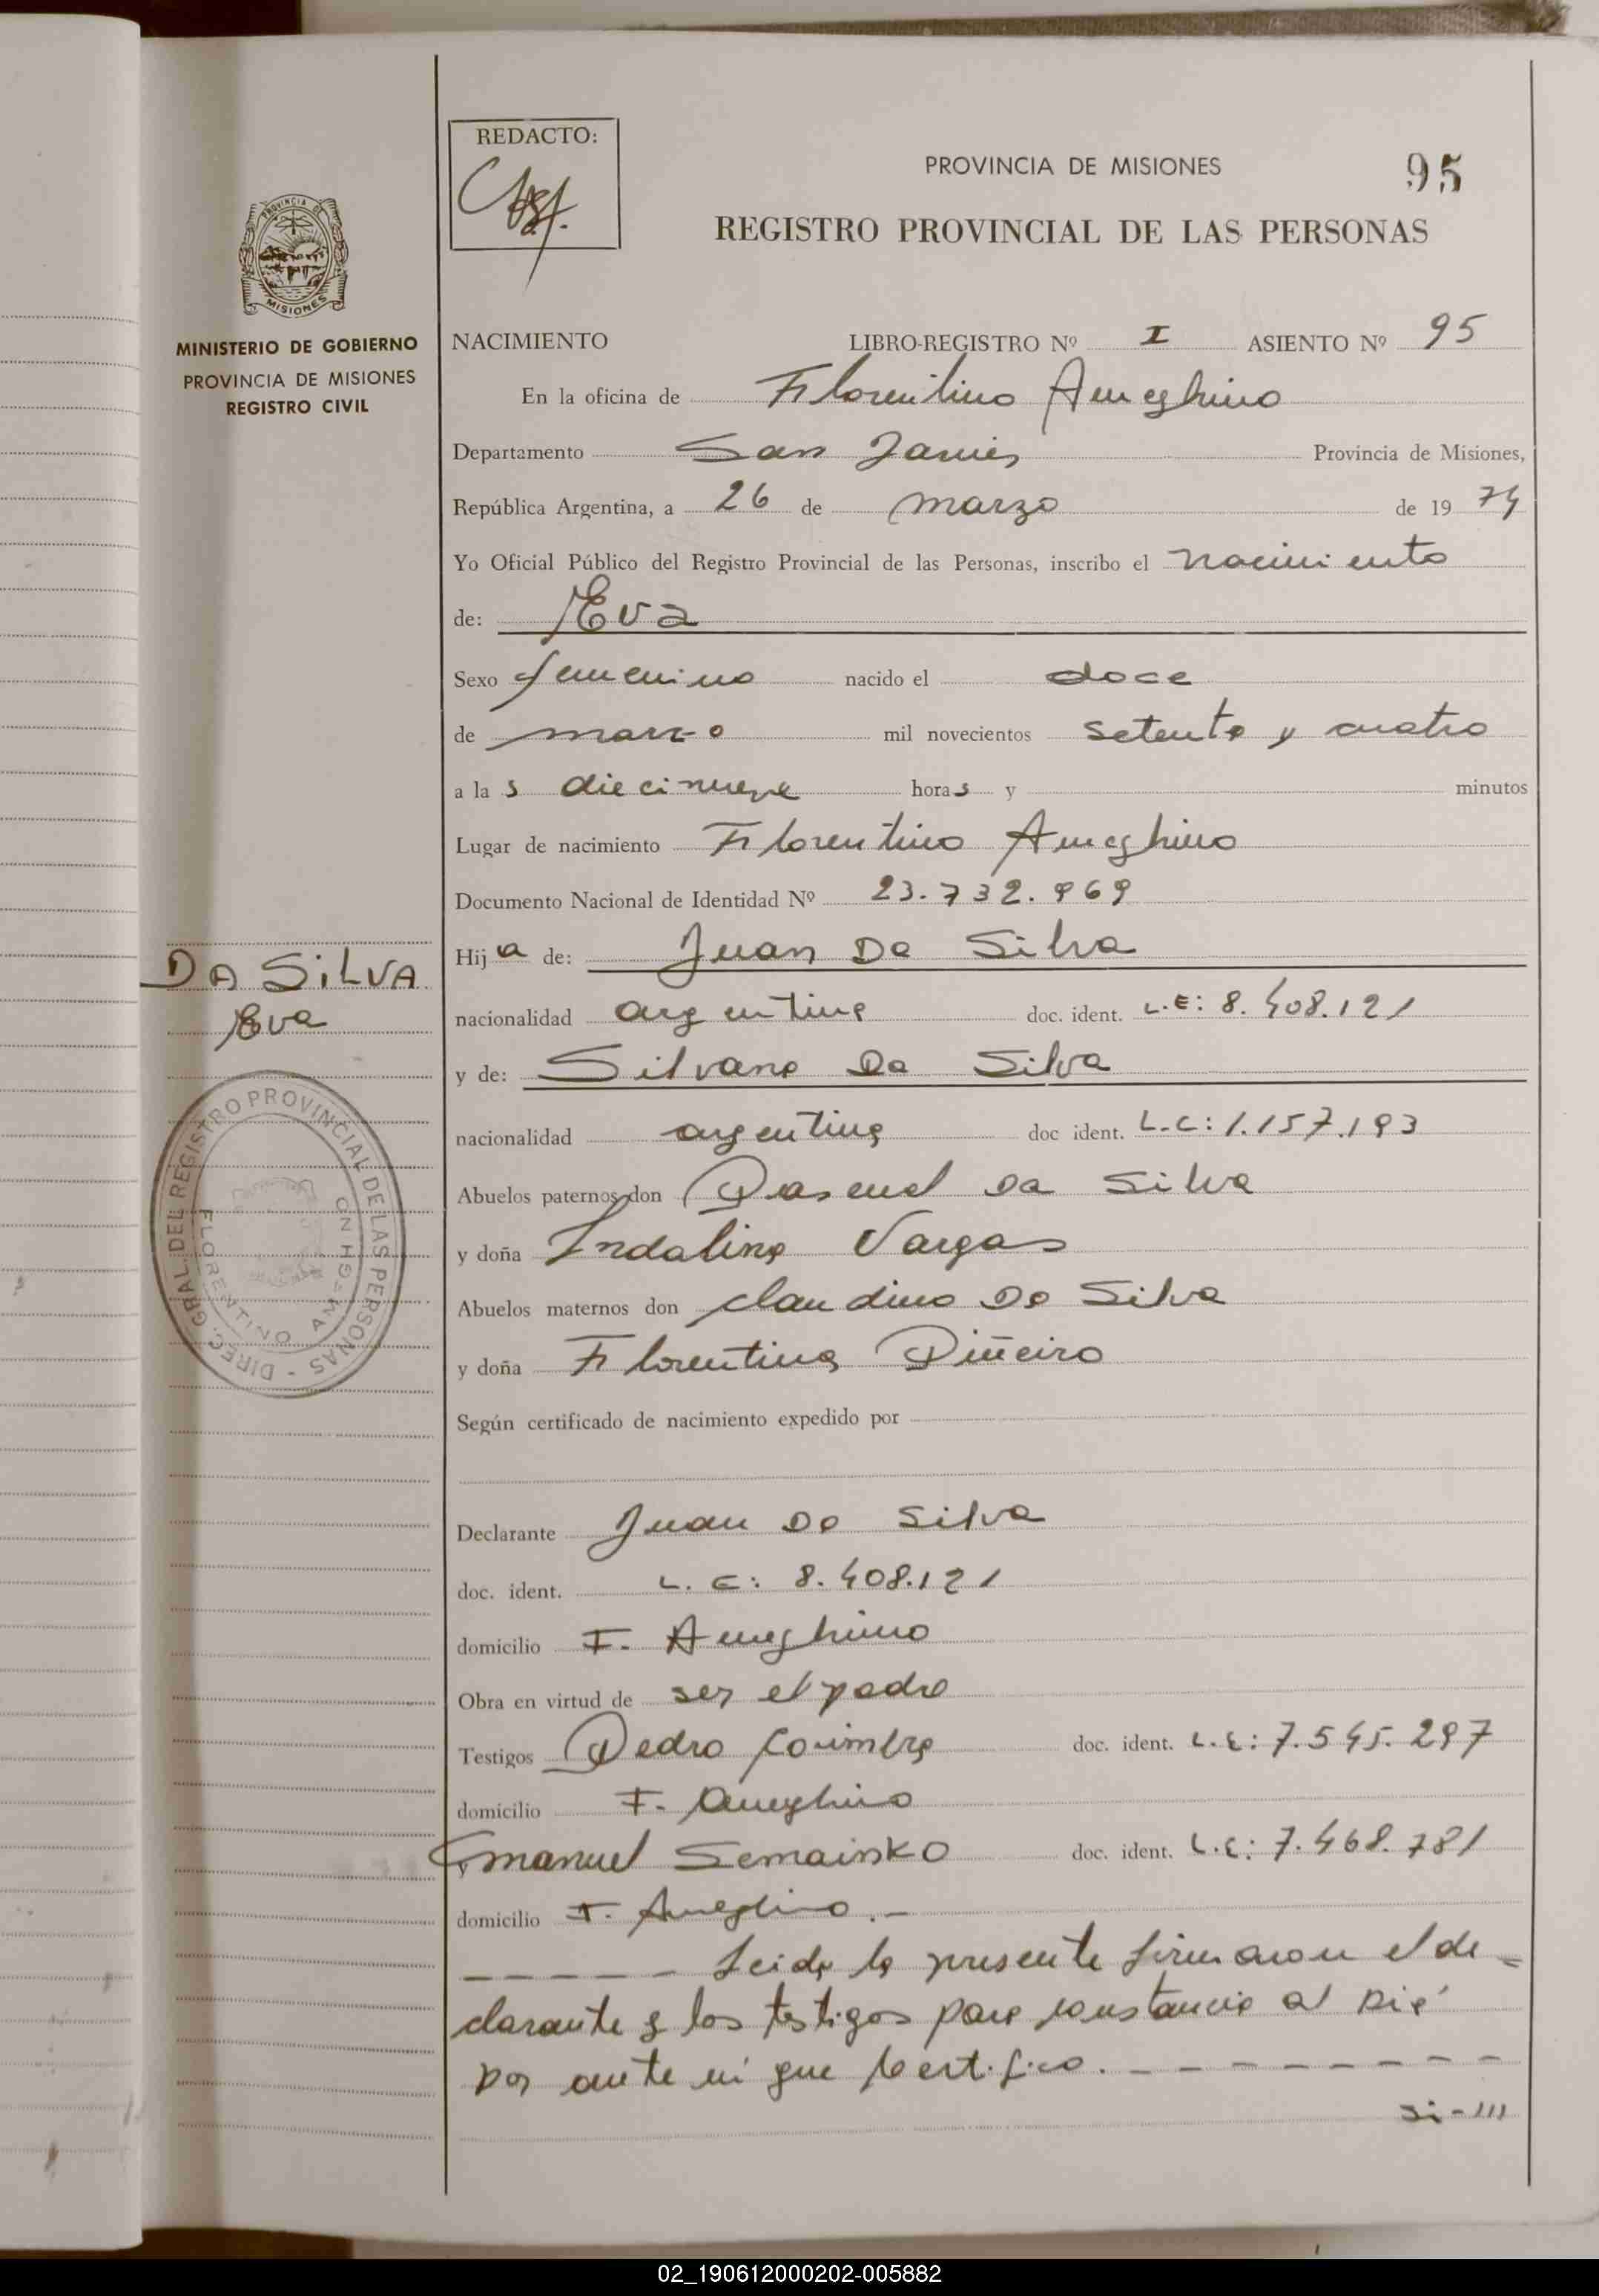 REDACTO:
PROVINCIA DE MISIONES
95
REGISTRO PROVINCIAL DE LAS PERSONAS
PROVINCIA DE
MISIONES
MINISTERIO DE GOBIERNO
PROVINCIA DE MISIONES
REGISTRO CIVIL
NACIMIENTO LIBRO-REGISTRO Nº I ASIENTO Nº 95
En la oficina de Florentino Ameghino
Departamento San Javier Provincia de Misiones,
República Argentina, a 26 de marzo de 19 74
Yo Oficial Público del Registro Provincial de las Personas, inscribo el nacimiento
de: Eva
Sexo femenino nacido el doce
de marzo mil novecientos setenta y cuatro
a la s diecinueve hora s y minutos
Lugar de nacimiento Florentino Ameghino
Documento Nacional de Identidad Nº 23.732.969
Hij a de: Juan Da Silva
DA SILVA
Eva
nacionalidad argentina doc. ident. L.E: 8.408.121
y de: Silvana Da Silva
nacionalidad argentina doc ident. L.C: 1.157.193
Abuelos paternos don Pascual Da Silva
y doña Indalina Vargas
Abuelos maternos don Claudino Da Silva
y doña Florentina Piñeiro
DIREC. GRAL. DEL REGISTRO PROVINCIAL DE LAS PERSONAS -
FLORENTINO AMEGHINO
Según certificado de nacimiento expedido por
Declarante Juan Da Silva
doc. ident. L.E: 8.408.121
domicilio F. Ameghino
Obra en virtud de ser el padre
Testigos Pedro Coimbra doc. ident. L.E: 7.545.297
domicilio F. Ameghino
y Emanuel Semainsko doc. ident. L.E: 7.468.781
domicilio F. Ameghino.-
_ _ _ _ _ Leida la presente firmaron el de=
clarante y los testigos para constancia al pié
por ante mi que certifico. _ _ _ _ _ _ _ _
si-///
02_190612000202-005882